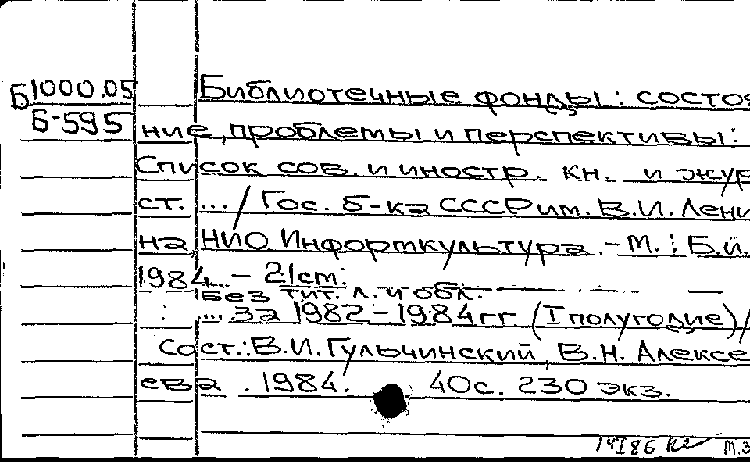 Б1000.05 Библиотечные фонды: состоя
Б-595 ние, проблемы и перспективы:
Список сов. и иностр. кн. и жур
ст. .../ Гос. б-ка СССР им. В.И. Лени
на, НИО Информкультура. - М.: Б.и.
1984. - 21 см.
Без тит. л. и обл.
... за 1982-1984 гг. (I полугодие)/
Сост.: В.И. Гульчинский, В.Н. Алексе
ева. 1984. 40с. 230 экз.